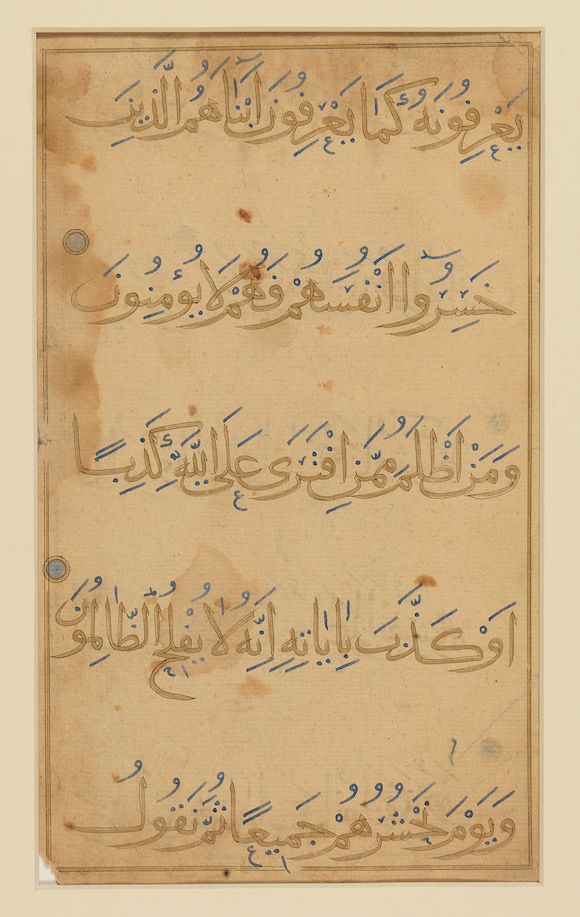 يَعْرِفُونَهُ كَمَا يَعْرِفُونَ اَبْنَاۤهُمُ الَّذِينَ
خَسِرُوۤا اَنْفُسَهُمْ فَهُمْ لَا يُؤْمِنُونَ
وَمَنْ اَظْلَمُ مِمَّنِ افْتَرَى عَلَى اللَّهِ كَذِبًا
اَوْ كَذَّبَ بِاٰيَاتِهِ اِنَّهُ لَا يُفْلِحُ الظَّالِمُونَ
وَيَوْمَ نَحْشُرُهُمْ جَمِيعًا ثُمَّ نَقُولُ